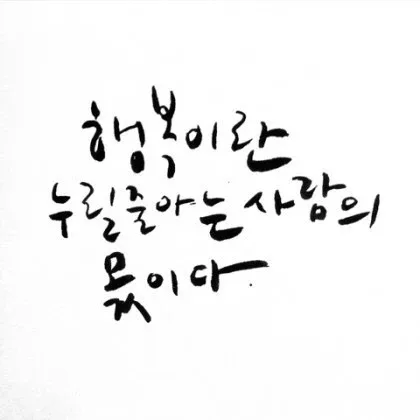 행복이란
누릴줄아는 사람의
몫이다.